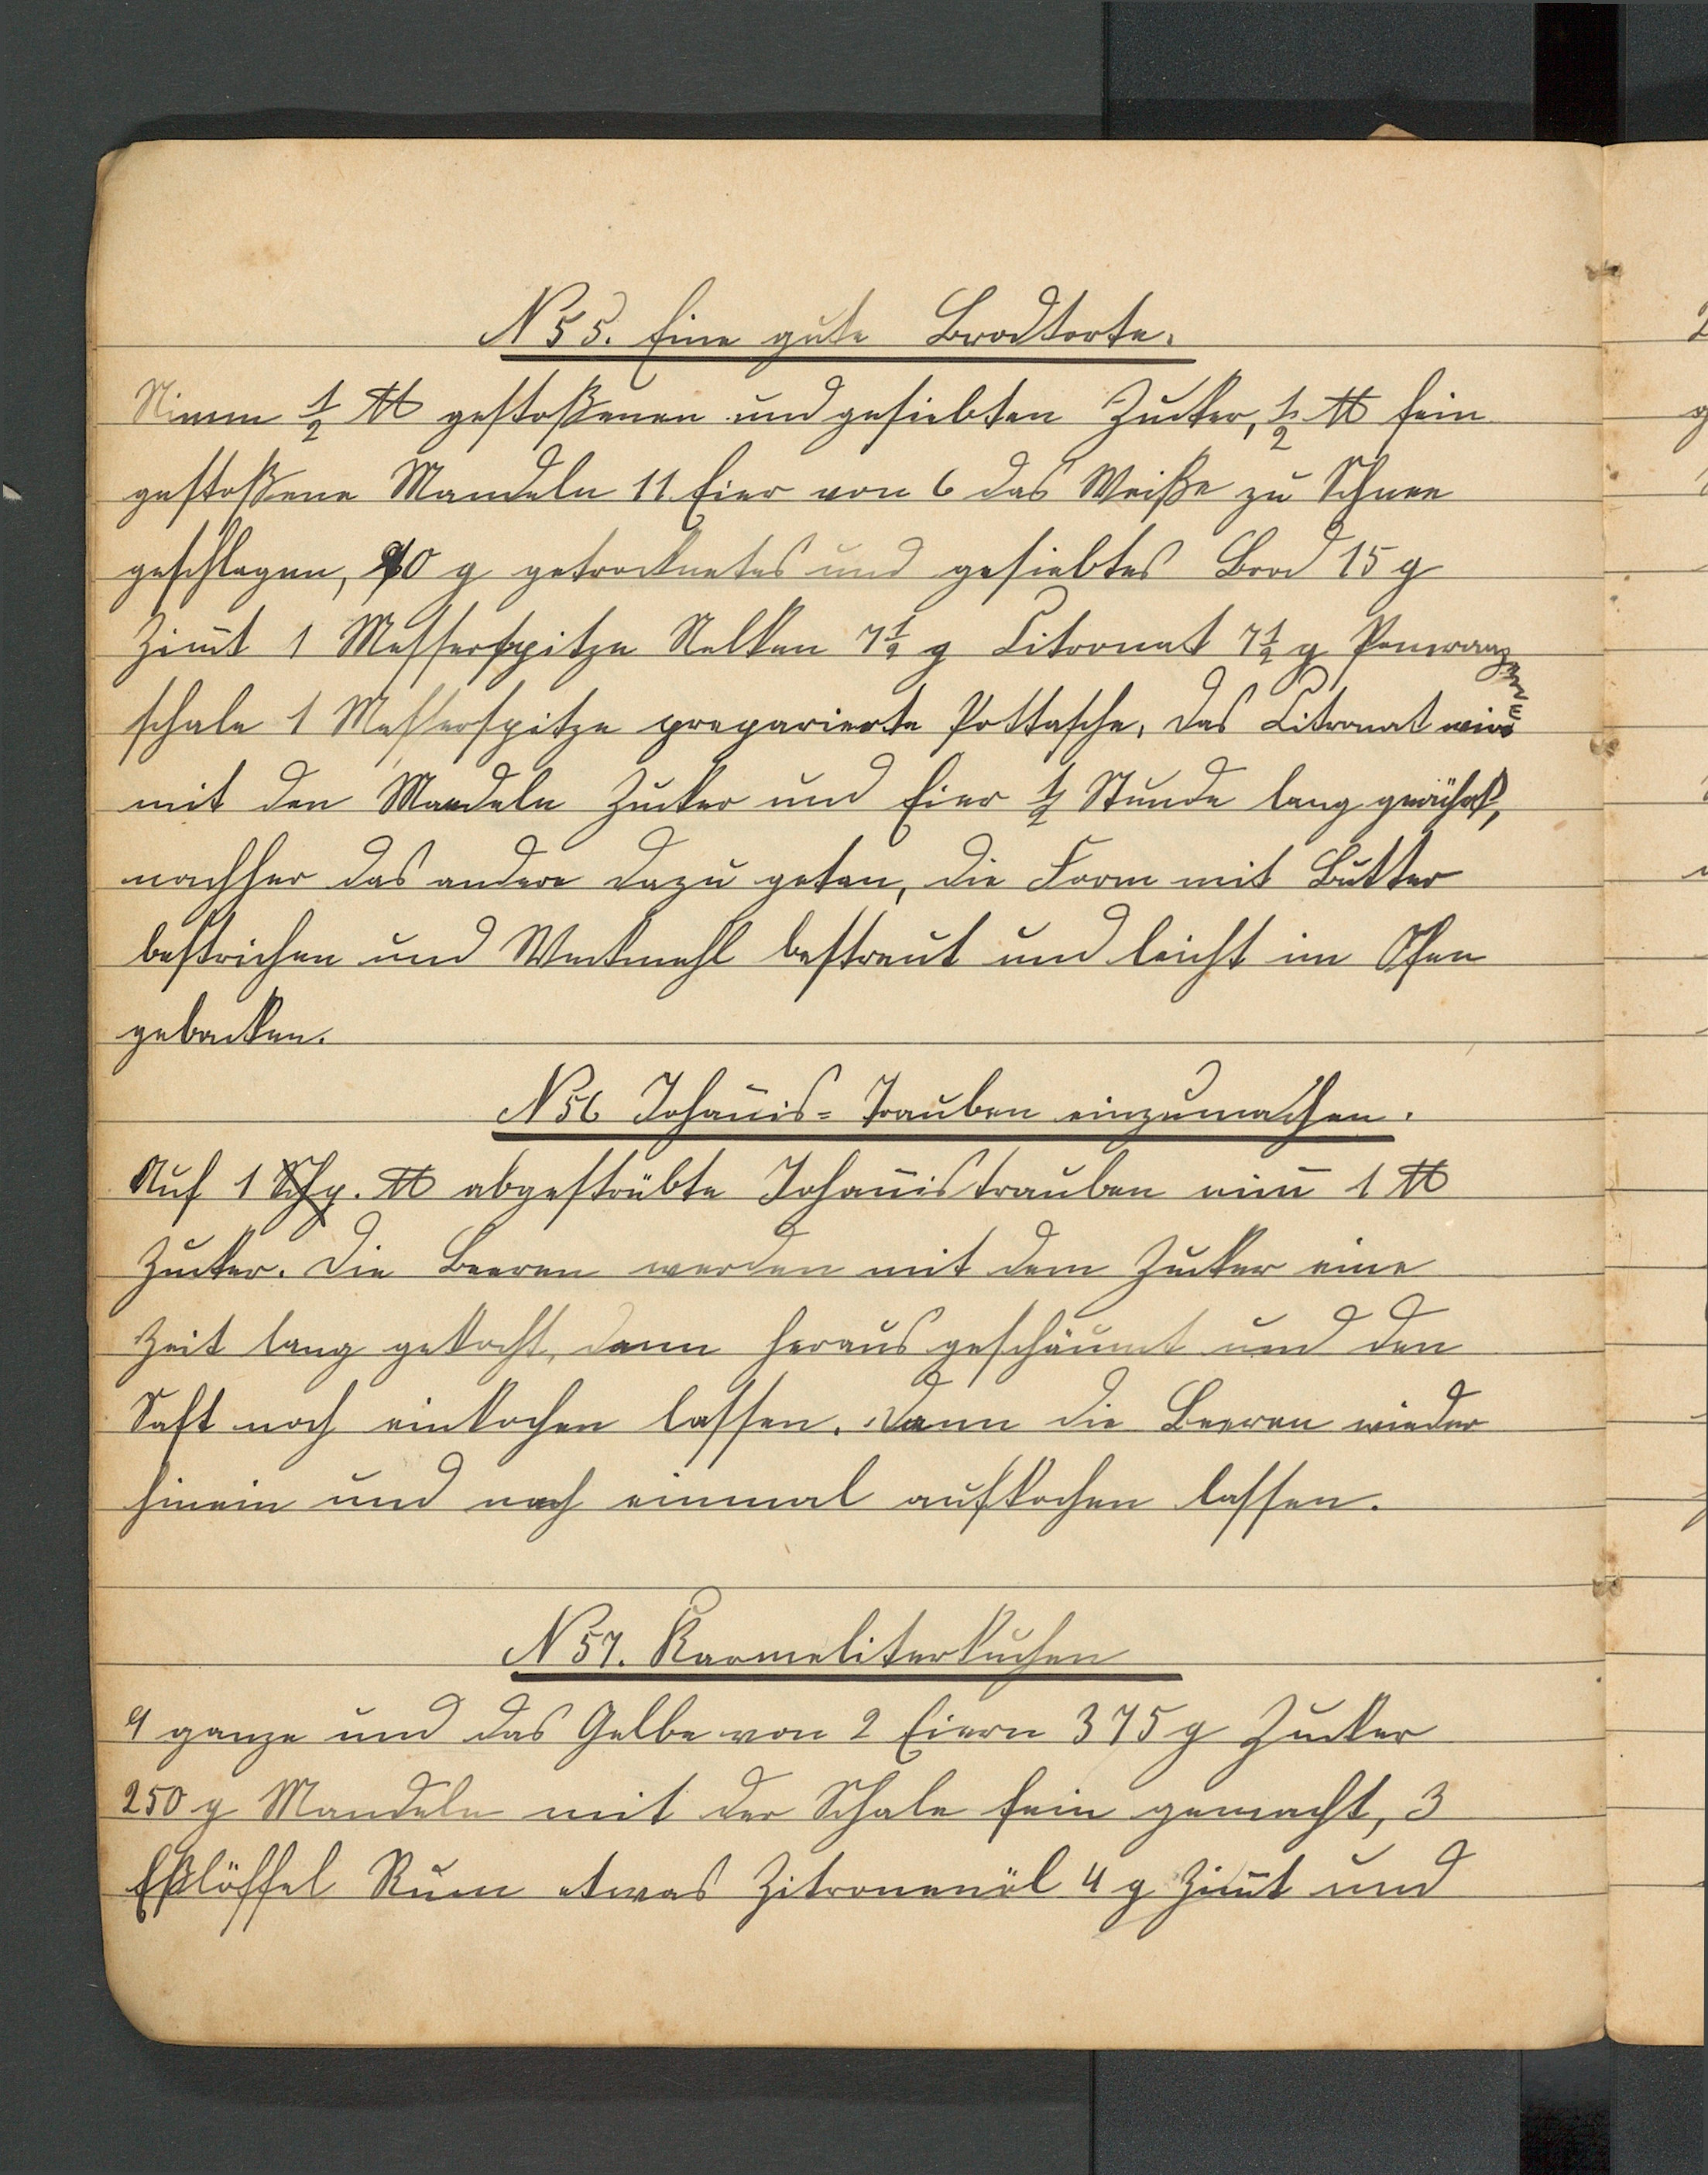 N 55. Eine gute Brodtorte.
Nimm ½ ℔ gestoßenen und gesiebten Zucker, ½ ℔ fein
gestoßene Mandeln 11 Eier von 6 das Weiße zu Schnee
geschlagen, 90 g getrocknetes und gesiebtes Brod 15 g
Zim̄t 1 Messerspitze Nelken 7½ g Citronat 7½ g Pomeranzen
schale 1 Messerspitze preparierte Pottasche, das Citronat wird
mit den Mandeln Zucker und Eier ½ Stunde lang gerührt,
nachher das andere dazu getan, die Form mit Butter
bestrichen und Weckmehl bestreut und leicht im Ofen
gebacken.
N 56 Johan̄is= Trauben einzumachen.
Auf 1 ℔ abgestrübte Johan̄istrauben nim̄ 1 ℔
Zucker. Die Beeren werden mit dem Zucker eine
Zeit lang gekocht, dann heraus geschäumt und den
Saft noch einkochen lassen. Dann die Beeren wieder
hinein und noch einmal aufkochen lassen.
N 57. Karmeliterkuchen
4 ganze und das Gelbe von 2 Eiern 375 g Zucker
250 g Mandeln mit der Schale fein gemacht, 3
Eßlöffel Rum etwas Zitronenöl 4 g Zim̄t und